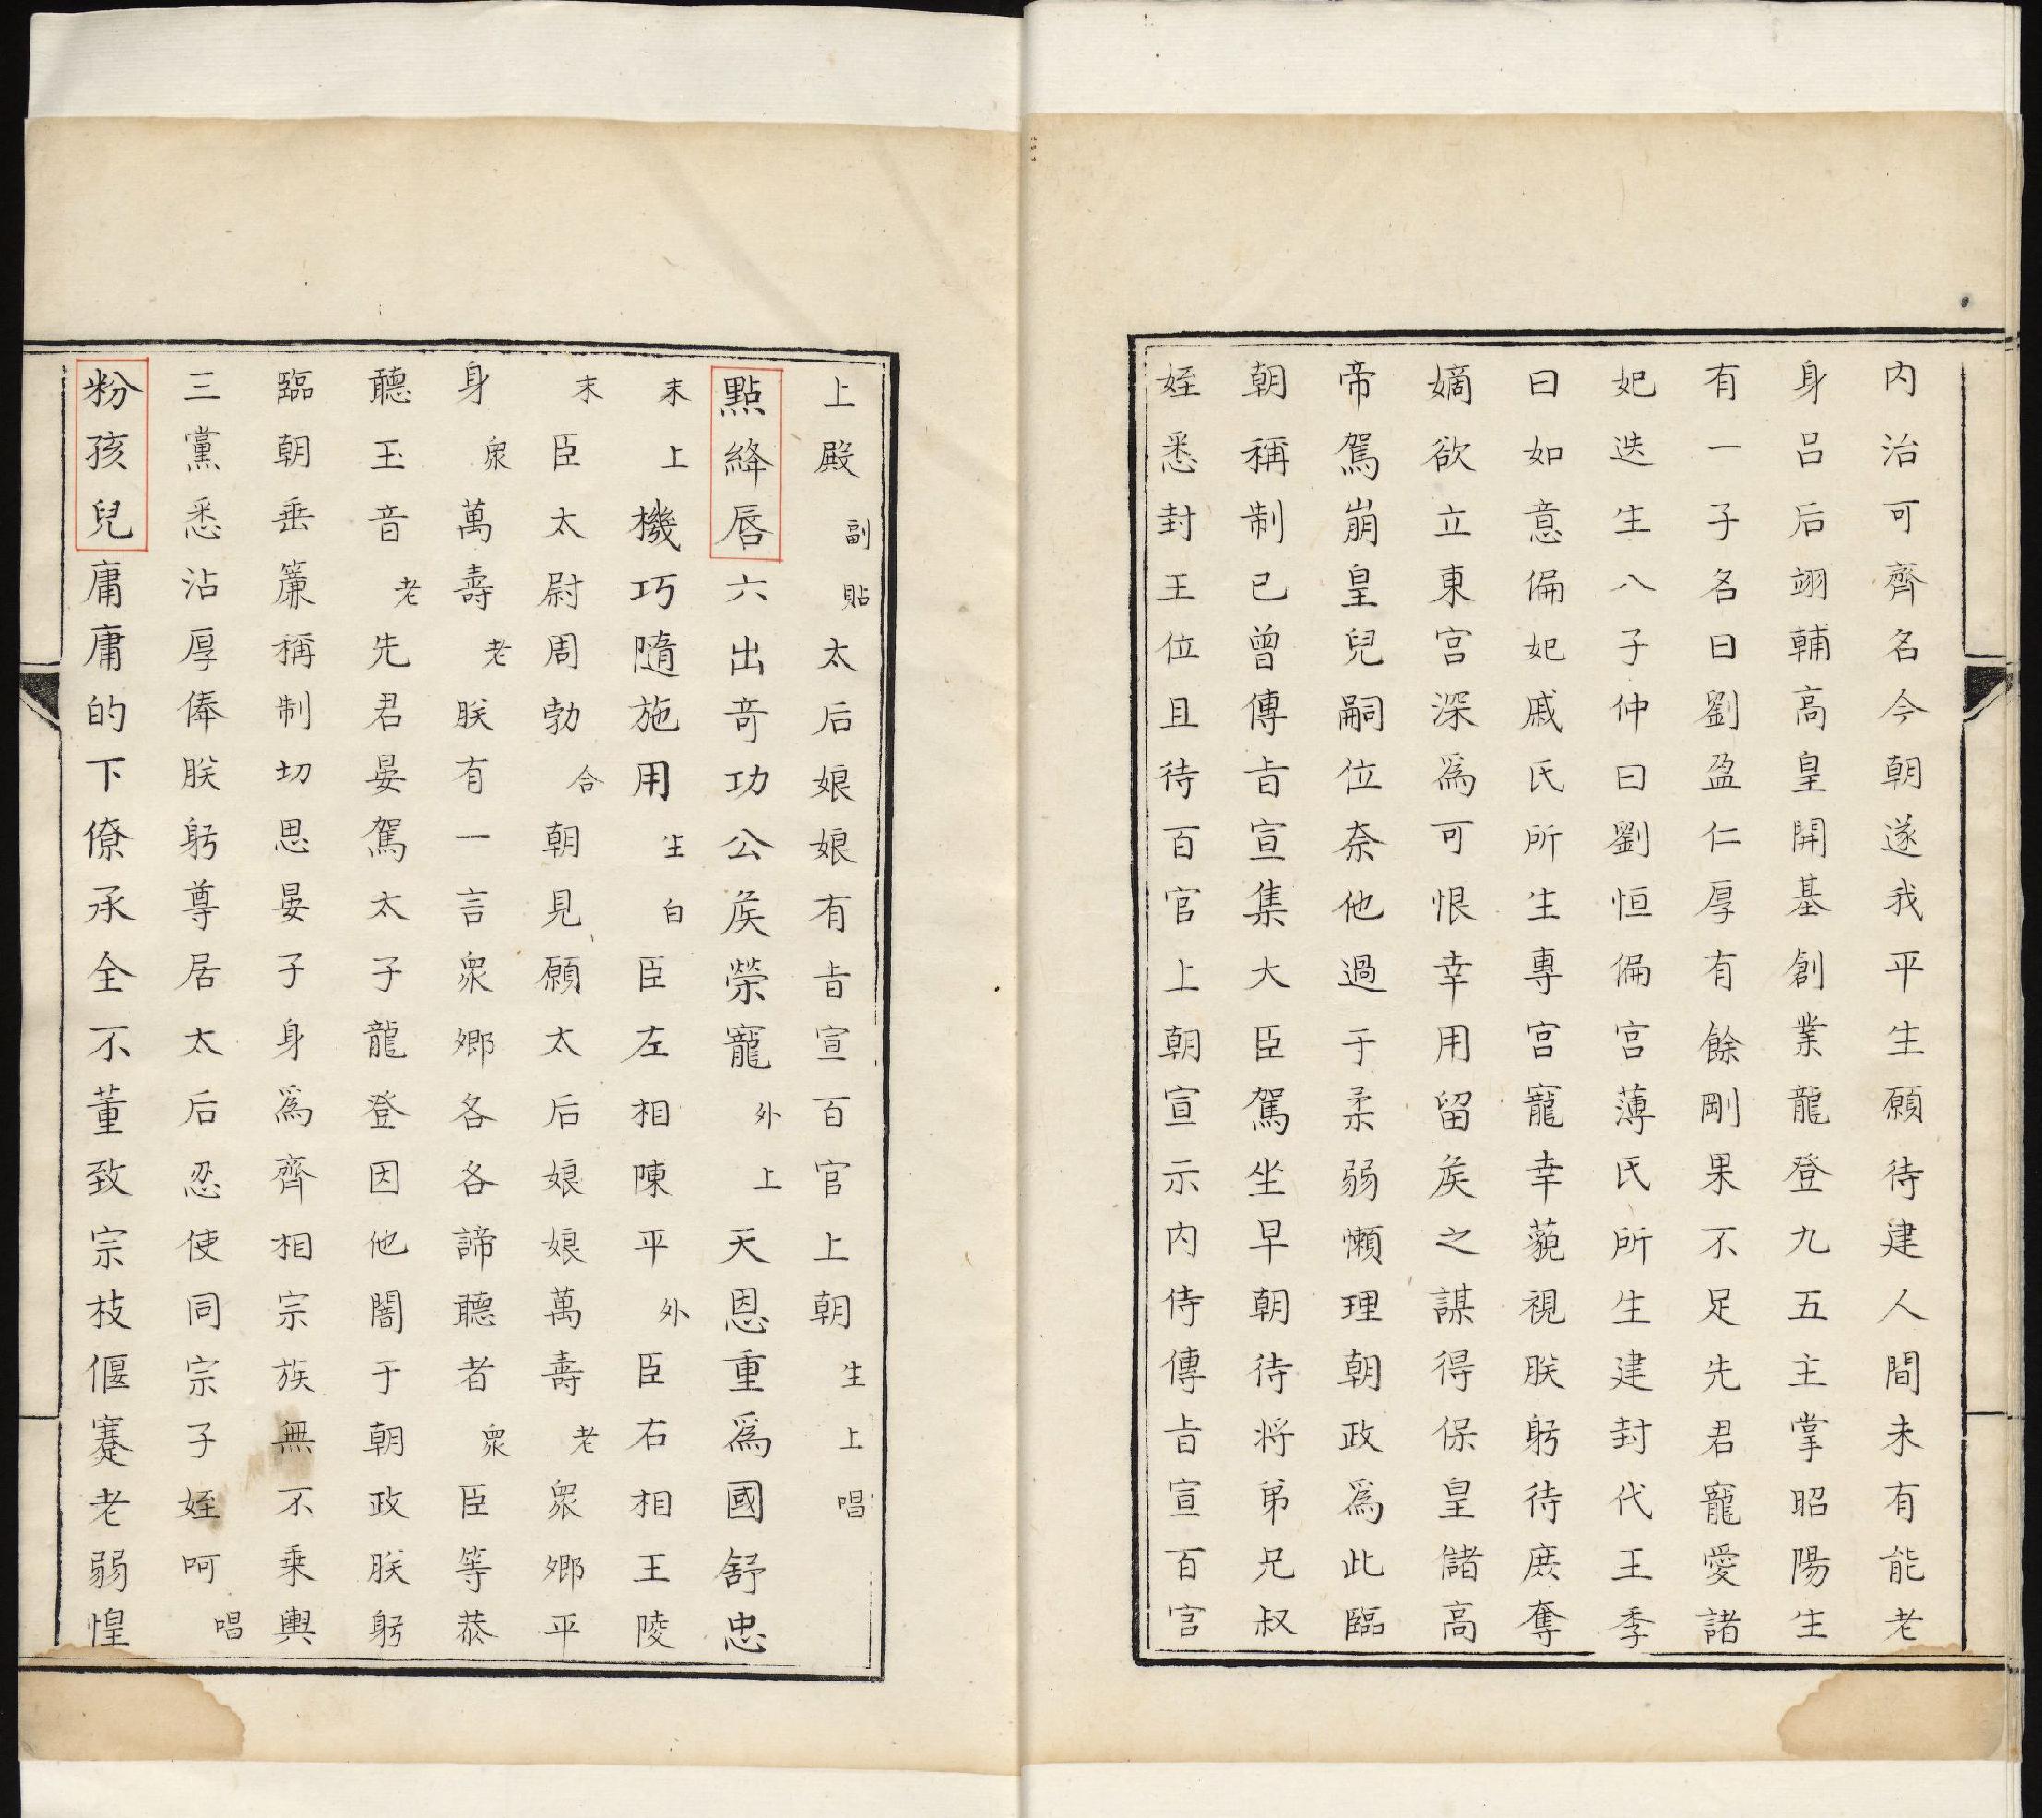 內治可齊名今朝遂我平生願待建人間未有能老
身吕后翊輔高皇開基創業龍登九五主掌昭陽生
有一子名曰劉盈仁厚有餘剛果不足先君寵愛諸
妃迭生八子仲曰劉恒偏宮薄氏所生建封代王季
曰如意偏妃戚氏所生專宮寵幸藐視朕躬待庶奪
嫡欲立東宮深為可恨幸用留矦之謀得保皇儲高
帝駕崩皇兒嗣位奈他過于柔弱懶理朝政為此臨
朝稱制已曾傳旨宣集大臣駕坐早朝待將弟兄叔
姪悉封王位且待百官上朝宣示内侍傳旨宣百官
上殿副貼太后娘娘有旨宣百官上朝生上唱
點絳唇六出竒功公矦榮寵外上天恩重為國舒忠
末上機巧隨施用生白臣左相陳平外臣右相王陵
末臣太尉周勃合朝見願太后娘娘萬壽老衆鄉平
身衆萬壽老朕有一言衆鄉各各諦聽者衆臣等恭
聽玉音老先君晏駕太子龍登因他闇于朝政朕躬
臨朝垂簾稱制切思晏子身為齊相宗族無不乘輿
三黨悉沾厚俸朕躬尊居太后忍使同宗子姪呵唱
粉孩兒庸庸的下僚承全不董致宗枝偃蹇老弱惶